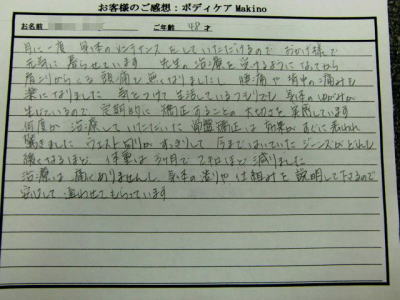 お客様のご感想：ボディケアMakino
お名前 ご年齢 48才
月に一度 身体のメンテナンスをしていただけるので おかげ様で
元気に暮らせています 先生の治療を受けるようになってから
肩こりからくる頭痛も無くなりましたし 腰痛や背中の痛みも
楽になりました 気をつけて生活しているつもりでも 身体のゆがみが
生じているので 定期的に矯正することの大切さを実感しています
何度か治療していただいた骨盤矯正は 効果がすぐに表われ
驚きました ウエスト回りがすっきりして 今まではいていたジーンズがどれも
緩くなるほど、体重は3ヶ月で2キロほど減りました
治療は痛くありませんし 身体の造りや仕組みを説明して下さるので
安心して通わせてもらっています